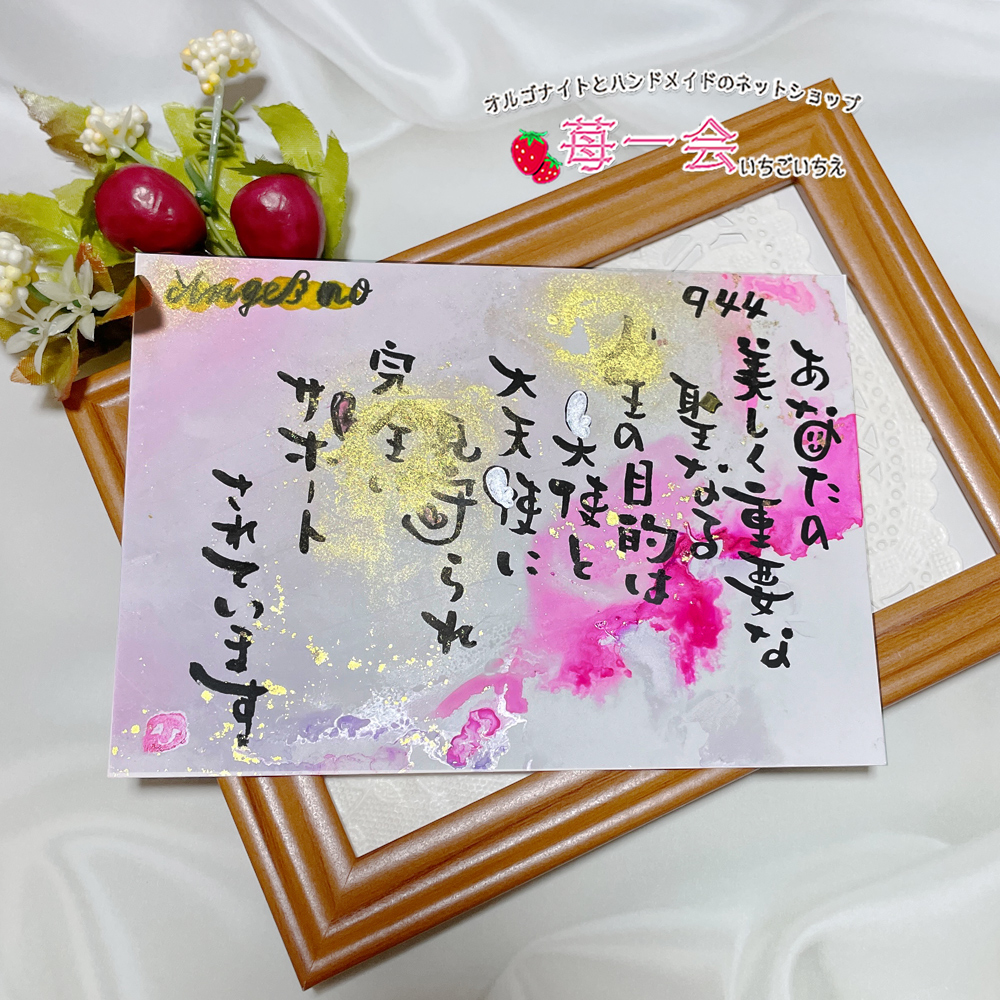 オルゴナイトとハンドメイドのネットショップ
苺一会
いちごいちえ
Angel no
944
あなたの
美しく重要な
聖なる
人生の目的は
大使と
大天使に
見守られ
完全に
サポート
されています